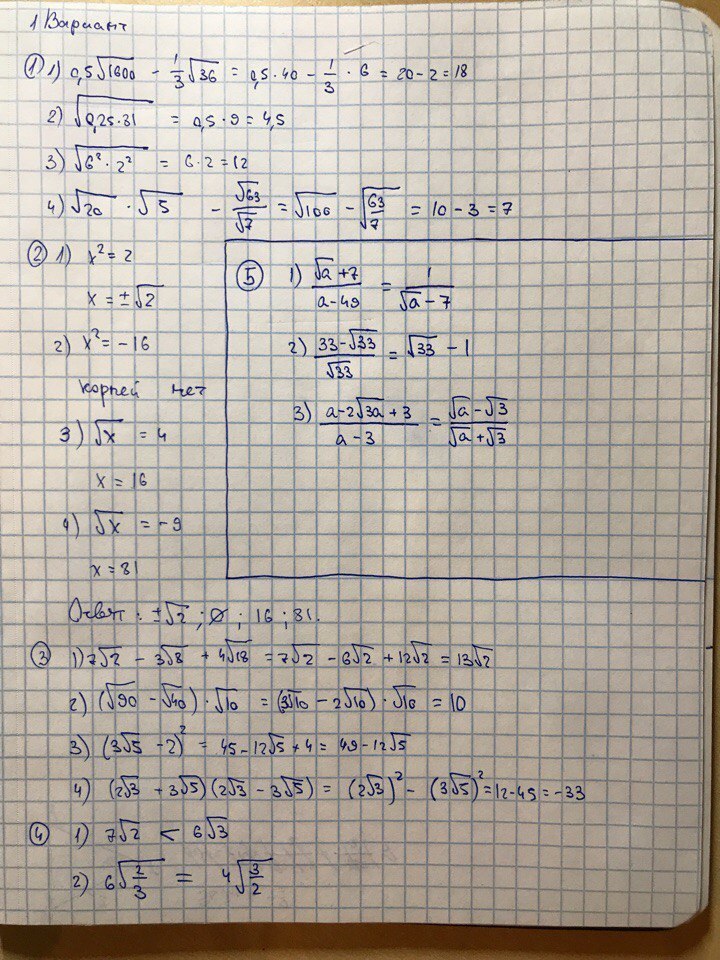 1 Вариант
① 1) 0,5√1600 - 1/3√36 = 0,5·40 - 1/3·6 = 20-2=18
2) √(0,25·81) = 0,5·9=4,5
3) √(6²·2²) = 6·2=12
4) √20 · √5 - √63/√7 = √100 - √(63/7) = 10-3=7
② 1) x²=2
x=±√2
2) x²=-16
корней нет
3) √x = 4
x=16
4) √x = -9
x=81
Ответ: ±√2; ∅; 16; 81.
⑤ 1) (√a+7)/(a-49) = 1/(√a-7)
2) (33-√33)/√33 = √33 - 1
3) (a-2√3a+3)/(a-3) = (√a-√3)/(√a+√3)
③ 1) 7√2 - 3√8 + 4√18 = 7√2 - 6√2 + 12√2 = 13√2
2) (√90 - √40)·√10 = (3√10 - 2√10)·√10 = 10
3) (3√5 - 2)² = 45-12√5+4 = 49-12√5
4) (2√3 + 3√5)(2√3 - 3√5) = (2√3)² - (3√5)² = 12-45 = -33
④ 1) 7√2 < 6√3
2) 6√(2/3) = 4√(3/2)